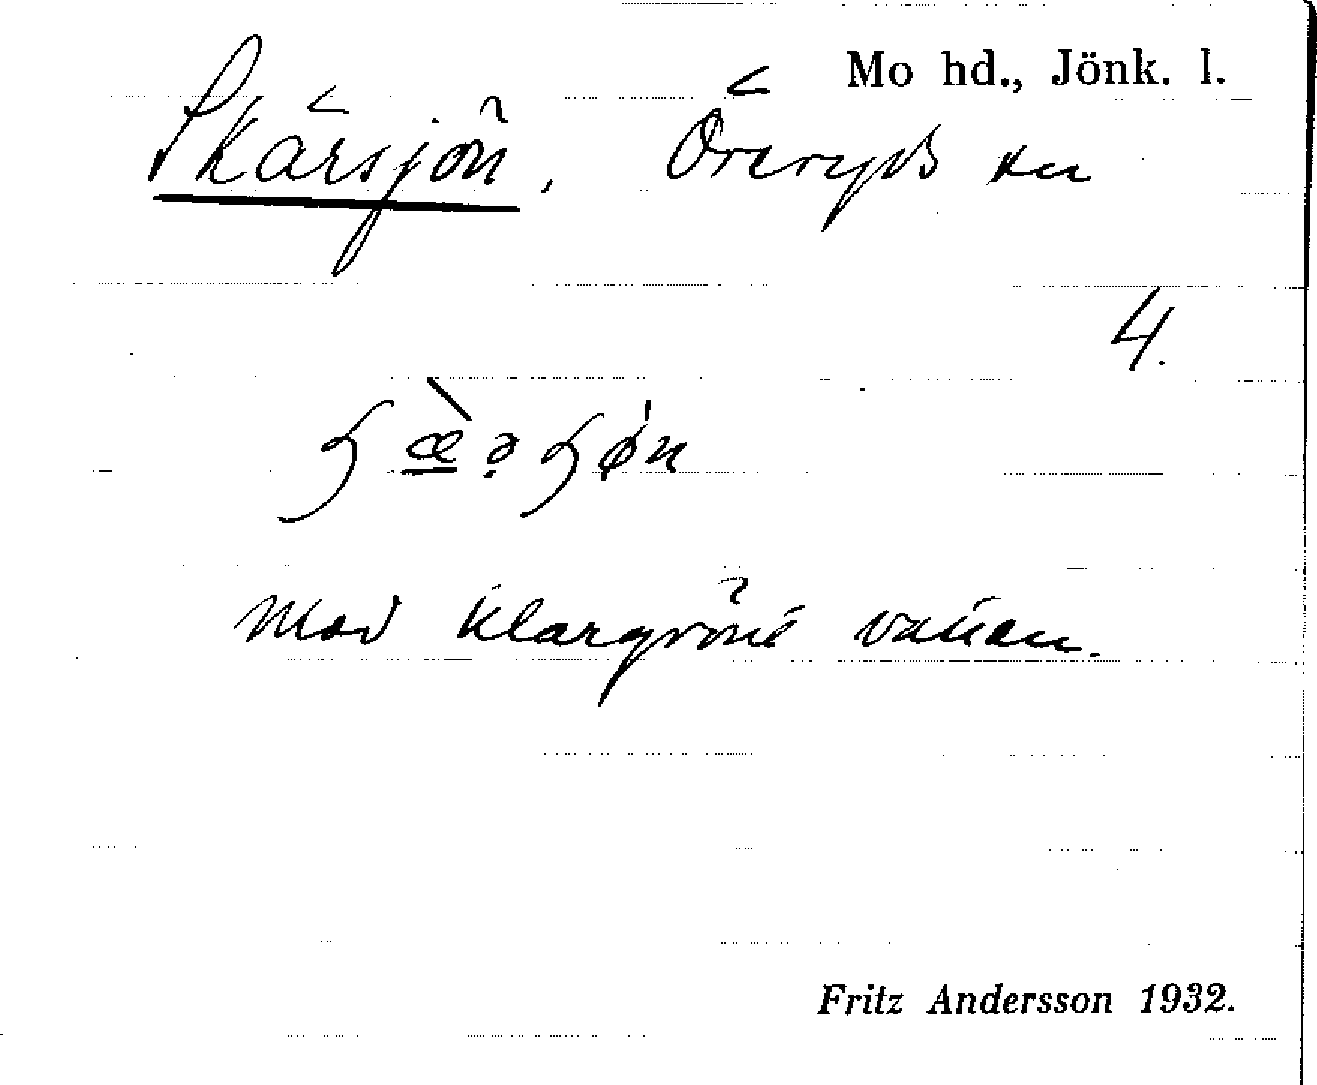 Mo hd., Jönk. l.
Skärsjön, Öreryds sn
4.
Med klargrönt vatten.
Fritz Andersson 1932.